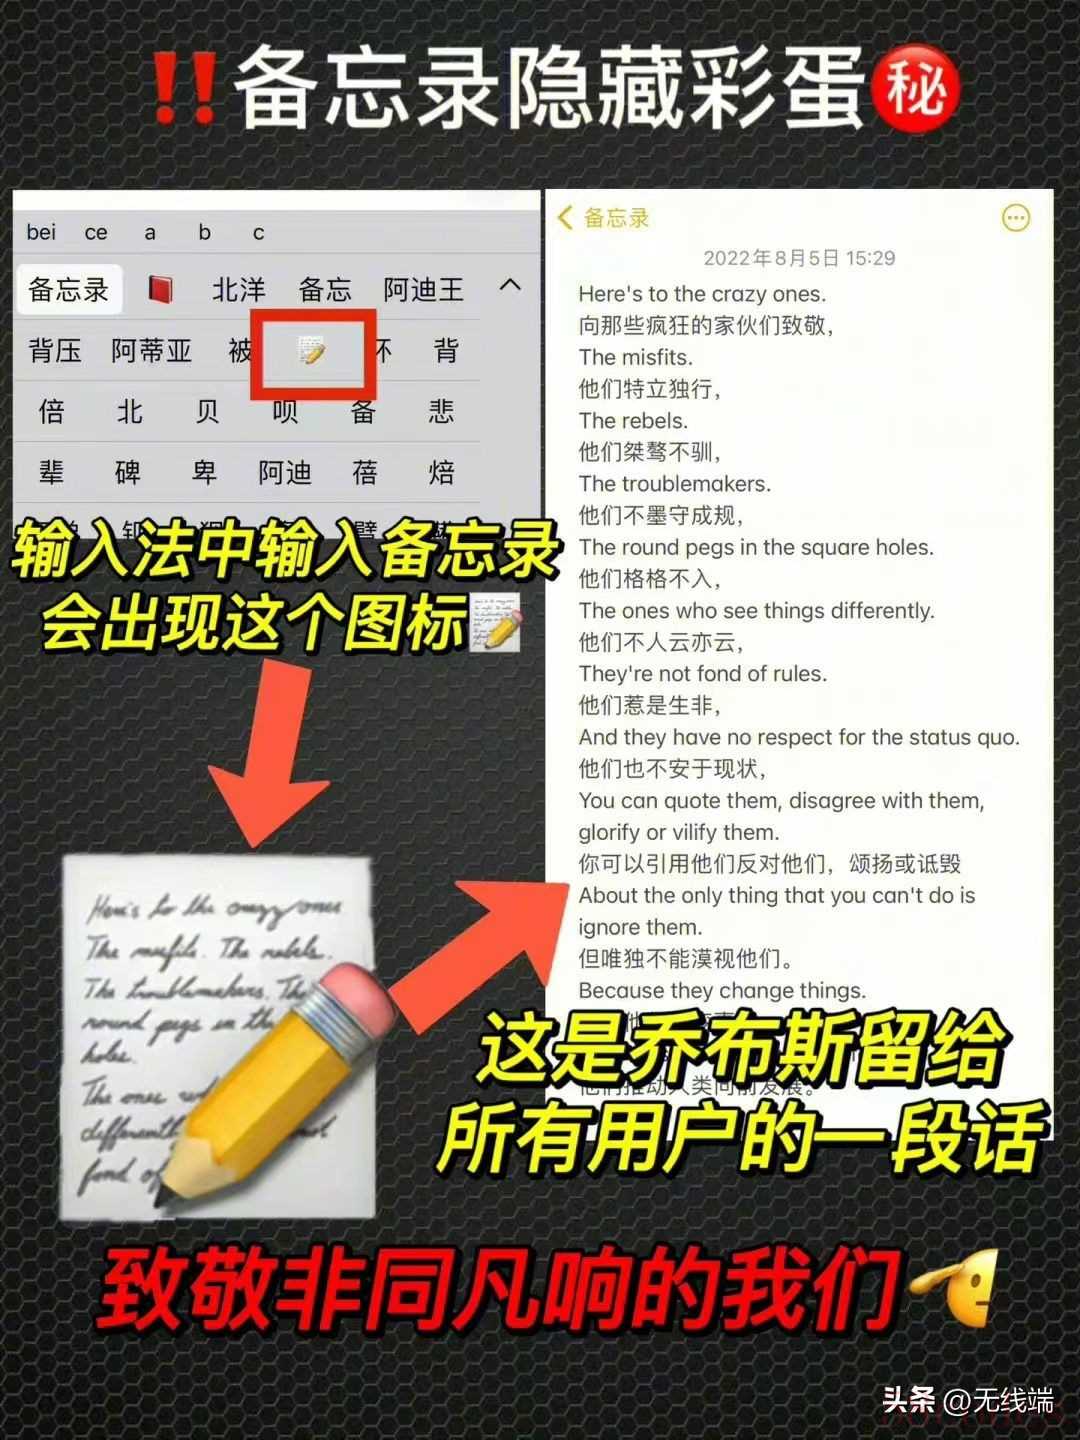 ‼️备忘录隐藏彩蛋㊙️
bei ce a b c
备忘录 北洋 备忘 阿迪王
背压 阿蒂亚 被 怀 背
倍 北 贝 呗 备 悲
辈 碑 卑 阿迪 蓓 焙
输入法中输入备忘录
会出现这个图标
Here's to the crazy ones
The misfits. The rebels.
The troublemakers. The
round pegs in the
holes.
The ones
different
fond of
备忘录
2022年8月5日 15:29
Here's to the crazy ones.
向那些疯狂的家伙们致敬,
The misfits.
他们特立独行,
The rebels.
他们桀骜不驯,
The troublemakers.
他们不墨守成规,
The round pegs in the square holes.
他们格格不入,
The ones who see things differently.
他们不人云亦云,
They're not fond of rules.
他们惹是生非,
And they have no respect for the status quo.
他们也不安于现状,
You can quote them, disagree with them,
glorify or vilify them.
你可以引用他们反对他们，颂扬或诋毁
About the only thing that you can't do is
ignore them.
但唯独不能漠视他们。
Because they change things.
他们推动人类向前发展。
这是乔布斯留给
所有用户的一段话
致敬非同凡响的我们
头条 @无线端